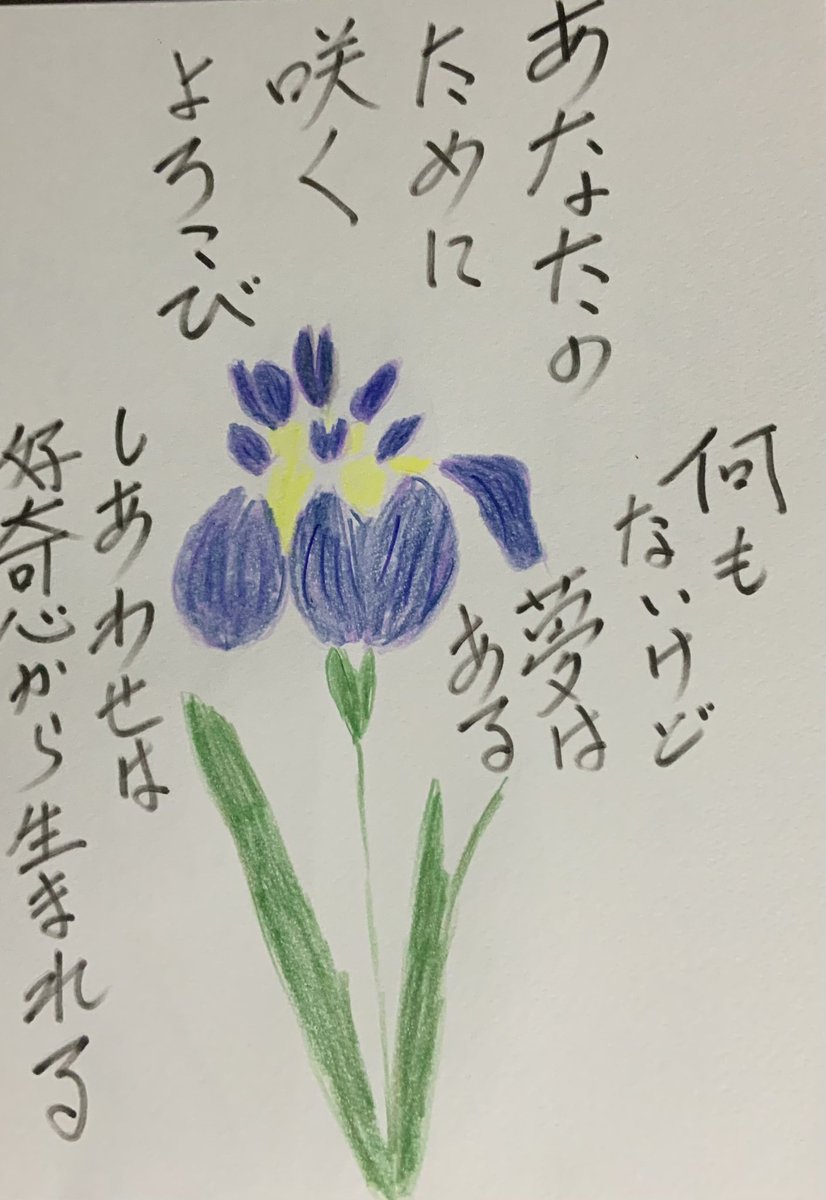 あなたの
ために
咲く
よろこび
何も
ないけど
夢は
ある
しあわせは
好奇心から生まれる